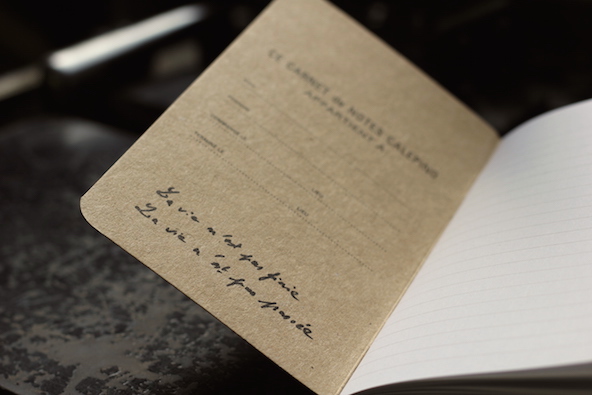 CE CARNET de NOTES CALEPINO
APPARTIENT À
La vie n'est pas finie
La vie n'est pas passée